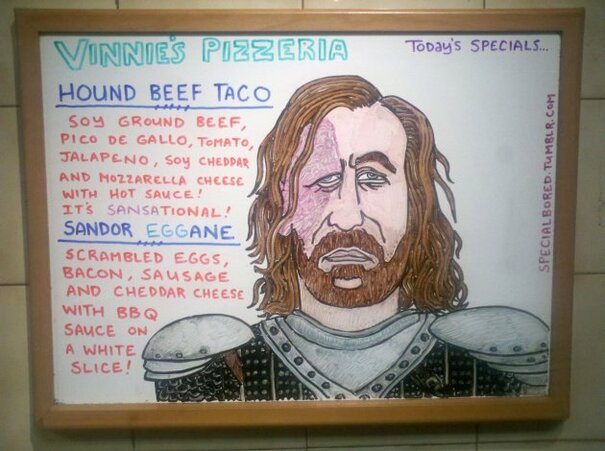 VINNIE'S PIZZERIA
TODAY'S SPECIALS...
HOUND BEEF TACO
SOY GROUND BEEF,
PICO DE GALLO, TOMATO,
JALAPENO, SOY CHEDDAR
AND MOZZARELLA CHEESE
WITH HOT SAUCE!
IT'S SANSATIONAL!
SANDOR EGGANE
SCRAMBLED EGGS,
BACON, SAUSAGE
AND CHEDDAR CHEESE
WITH BBQ
SAUCE ON
A WHITE
SLICE!
SPECIALBORED.TUMBLR.COM